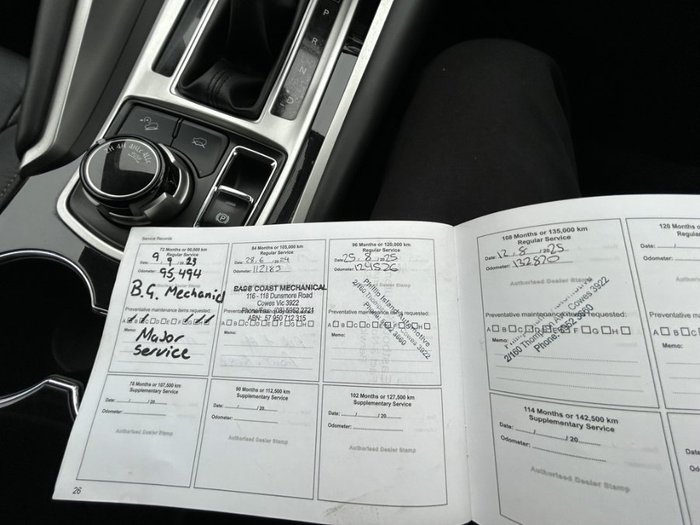 P
R
N
D
2H 4H 4HLC 4LLC
Service Records
72 Months or 90,000 km
Regular Service
Date: 9 / 9 /20 23
Odometer: 95,494
B.G. Mechanic
Preventative maintenance items requested:
A B C D E F G H
Memo:
Major
Service
84 Months or 105,000 km
Regular Service
Date: 28.6 /2024
Odometer: 112183
BASS COAST MECHANICAL
116 - 118 Dunsmore Road
Cowes Vic 3922
Phone/Fax: (03) 5952 2721
ABN: 57 950 712 315
A B C D E F G H
Memo:
96 Months or 120,000 km
Regular Service
Date: 25. 8 /2025
Odometer: 124526
Cowes 3922
Preventative maintenance items requested:
A B C D E F G H
Memo:
78 Months or 97,500 km
Supplementary Service
Date: / /20
Odometer:
Authorised Dealer Stamp
90 Months or 112,500 km
Supplementary Service
Date: / /20
Odometer:
Authorised Dealer Stamp
102 Months or 127,500 km
Supplementary Service
Date: / /20
Odometer:
Authorised Dealer Stamp
26
108 Months or 135,000 km
Regular Service
Date: 12. 8 /2025
Odometer: 132820
Authorised Dealer Stamp
Cowes 3922
Preventative maintenance items requested:
A B C D E F G H
Memo:
114 Months or 142,500 km
Supplementary Service
Date: / /20
Odometer:
Authorised Dealer Stamp
120 Months or
Regular
Date: /
Odometer:
Authorised
Preventative maintenance
A B C
Memo: